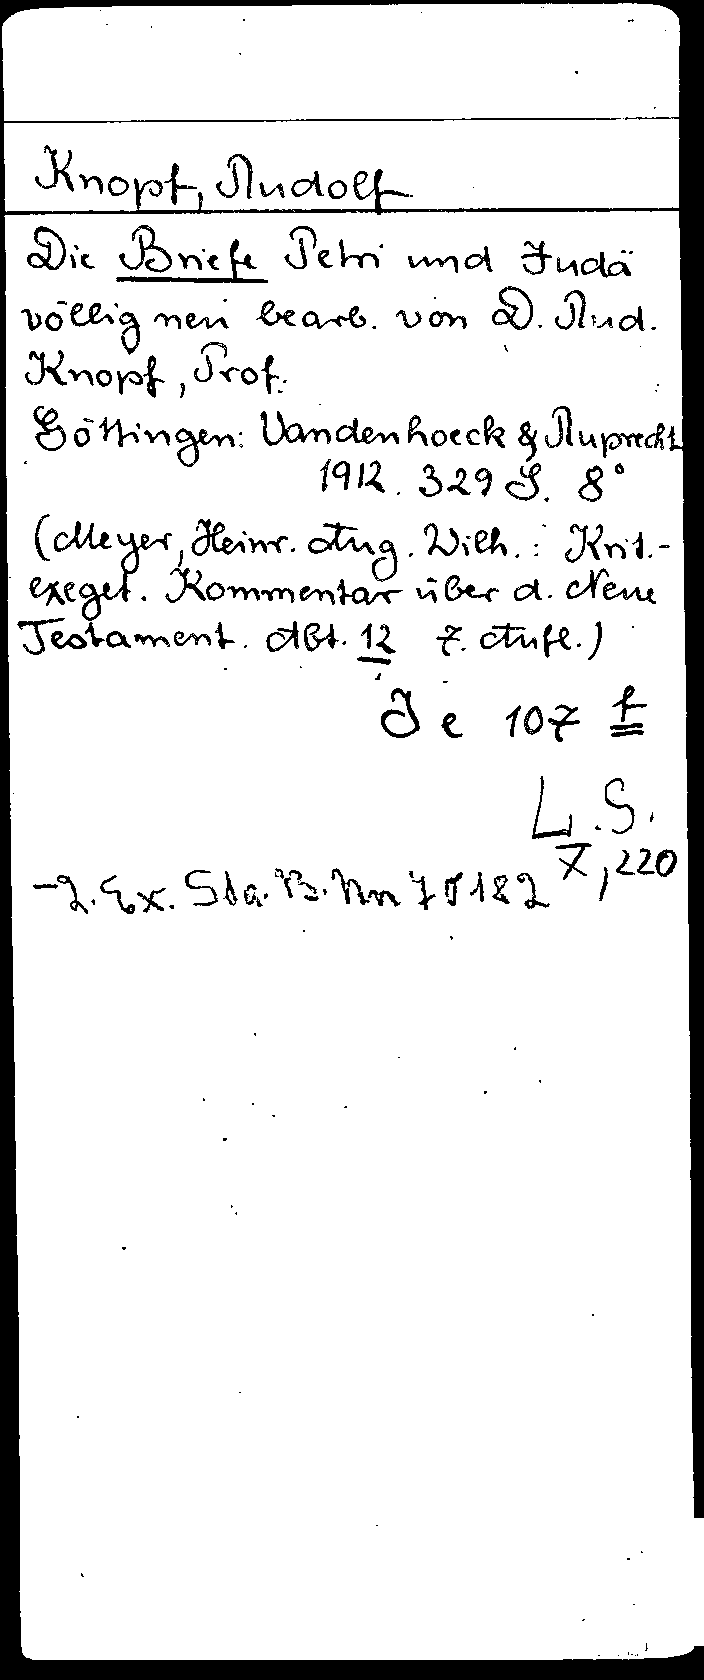 Knopf, Rudolf
Die Briefe Petri und Judä
völlig neu bearb. von D. Rud.
Knopf, Prof.
Göttingen: Vandenhoeck & Ruprecht
1912. 329 S. 8°
(Meyer, Heinr. Aug. Wilh.: Krit.-
exeget. Kommentar über d. Neue
Testament. Abt. 12 7. Aufl.)
Je 107 f
L.S.
X, 220
-2. Ex. Sta. B. 182